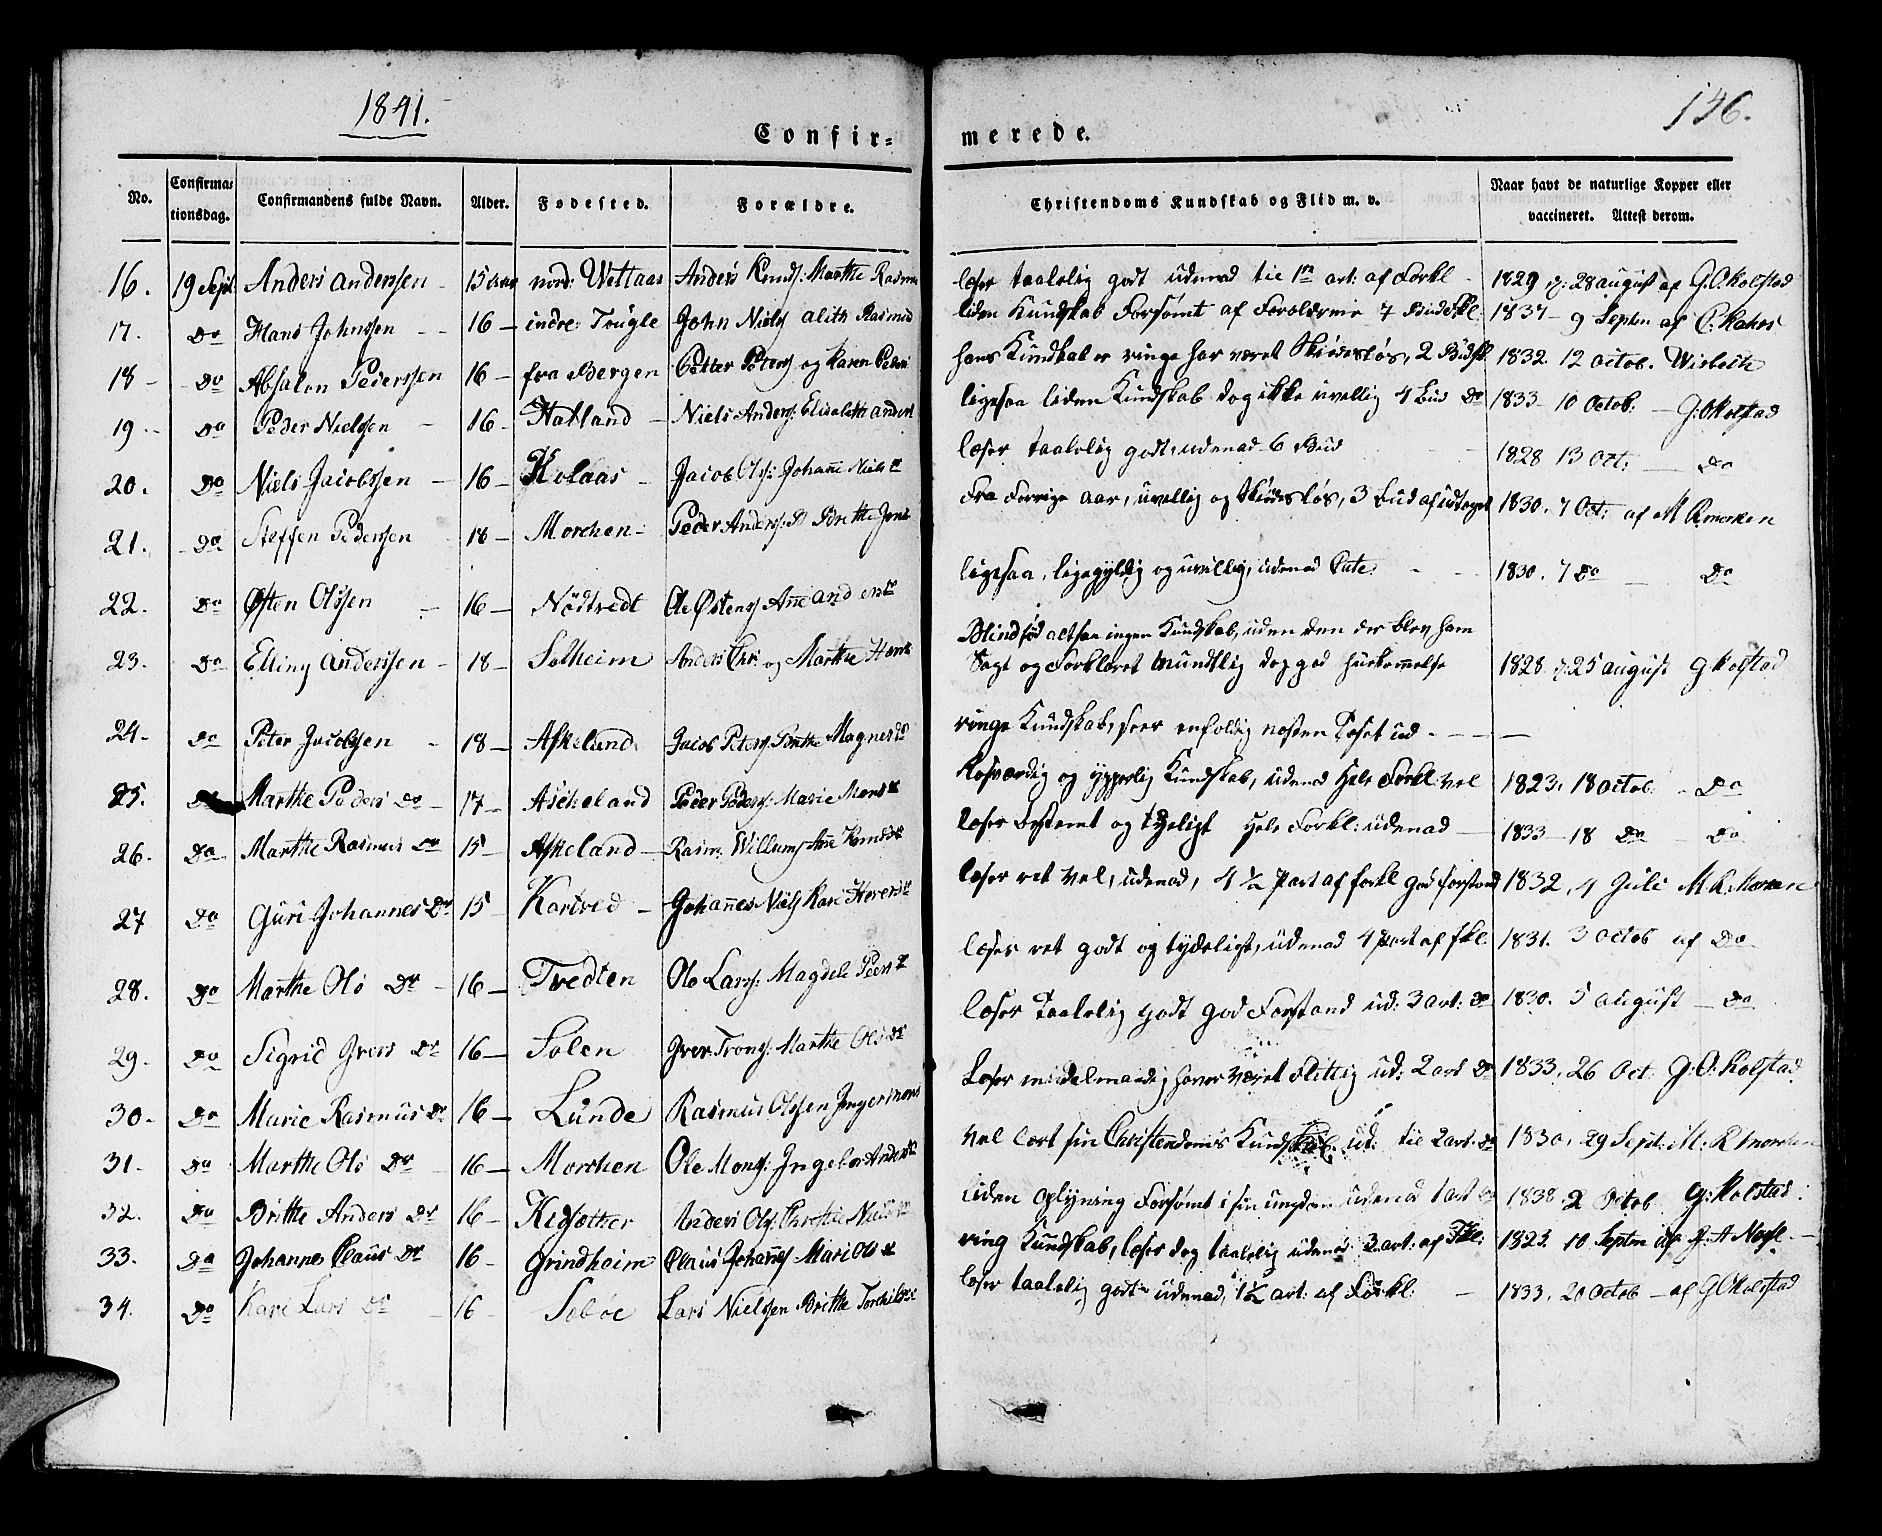 1841.
146.
Confir=
merede.
No.
Confirma=
tionsdag.
Confirmandens fulde Navn.
Alder.
Fødested.
Forældre.
Christendoms Kundskab og Flid m. v.
Naar havt de naturlige Kopper eller
vaccineret. Attest derom.
16. 19 Sept Anders Andersen 15 aar nord: Wettaas Anders Knuds: Marthe Rasm læser taalelig godt udenad til art: af Forkl 1829 d: 28 august af G. O. Kolstad
17. Do Hans Johnssen 16 indre: Tougle John Niels Alith Rasmus liden Kundskab Forsømt af Forældrene 7 1837 9 Septm af
18 Do Absalon Pederssen 16 fra Bergen Petter Peters og Karen Peders hans Kundskab er ringe har været Skiødesløs, 2 1832. 12 octob.
19 Do Peder Nielsen 16 Hatland Niels Anders: Elisabeth Anders ligesaa liden Kundskab dog ikke uvellig 4 Bud Do 1833 10 Octob: G: O Kolstad
20. Do Niels Jacobssen 16 Kolaas Jacob Ols: Johane Niels læser taalelig godt, udenad 6 Bud 1828 13 oct: Do
21. Do Steffen Pederssen 18 Morchen Peder Anders: Britthe Jens Fra Forrige aar, uvellig og Skiødesløs, 3 Bud af 1830. 7 Oct: af M R morken
22. Do Østen Olssen 16 Nødtvedt Ole Østens Ane Anders ligesaa, ligegyldig og uvellig, udenad 1830. 7 Do Do
23. Do Elling Anderssen 18 Solheim Anders Chr: og Marthe Hans Blindfød altsaa ingen Kundskab, uden den der blev ham
Sagt og Forklaret Mundtlig dog god hukommelse 1828 d: 25 august G Kolstad
24 Do Peter Jacobsen 18 Askeland Jacob Peters: Britthe Magnes ringe Kundskab, seer enfoldig næsten Læset ud
25. Do Marthe Peders Dr 17 Ascheland Peder Peders: Marie Mons Rosværdig og ypperlig Kundskab, udenad Hele Forkl vel 1823. 18 octob. Do
26. Do Marthe Rasmus Dr 15 Askeland Rasm: Willums Ane Knuds læser bestemt og tydeligt Hele Forkl: udenad 1833 18 Do Do
27 Do Guri Johannes Dr 15 Kartved Johannes Niels Kari læser ret vel, udenad, 4 ½ Part af forkl god forstand 1832, 4 Juli M R. Morken
28. Do Marthe Ols Dr 16 Tvedten Ole Lars: Magdele Peders læser ret godt og tydeligt, udenad 4 part af fkl 1831. 3 octob af Do
29. Do Sigrid Ivers Dr 16 Solen Iver Trons: Marthe Ols Dr læser Taalelig godt god Forstand ud: 3 art: Do 1830. 5 august Do
30. Do Marie Rasmus Dr 16 Lunde Rasmus Olssen Inger Mons Læser middelmaadig haver været Flittig ud: 2 art Do 1833. 26 Oct G: O: Kolstad
31. Do Marthe Ols Dr 16 Morchen Ole Mons: Ingebor Anders vel lært sin Christendoms Kundskab. ud: til 2 art: Do 1830. 29 Sept: M: R morken
32. Do Britthe Anders Dr 16 Anders Ols: Christie Niels liden oplysning Forsømt i sin ungdom udenad 1 art Do 1838. 2 Octob G: Kolstad
33. Do Johanne Claus Dr 16 Grindheim Claus Johans Mari Ols Dr ring Kundskab, læser dog taalelig udenad 3 art: af Fkl: 1823. 10 Septm af
34. Do Kari Lars Dr 16 Sebøe Lars Nielssen Britthe Torchilds læser taalelig godt udenad, 1½ art: af Forkl: 1833. 20 Octob af G O Kolstad